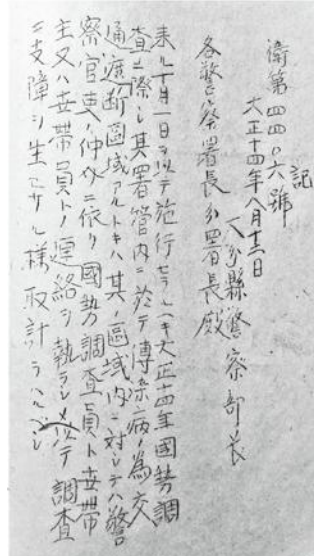 記
衛第四四〇六號
大正十四年八月十三日
大分縣警察部長
各警察署長分署長殿
来ル十月一日ヲ以テ施行セラルヘキ大正十四年國勢調
査ニ際シ其署管内ニ於テ傳染病ノ為交
通遮断區域アルトキハ其ノ區域内ニ対シテハ警
察官吏ノ仲介ニ依リ國勢調査員ト世帯
主又ハ世帯員トノ連絡ヲ執ラシメ以テ調査
ニ支障ヲ生セサル様取計ラハルベシ